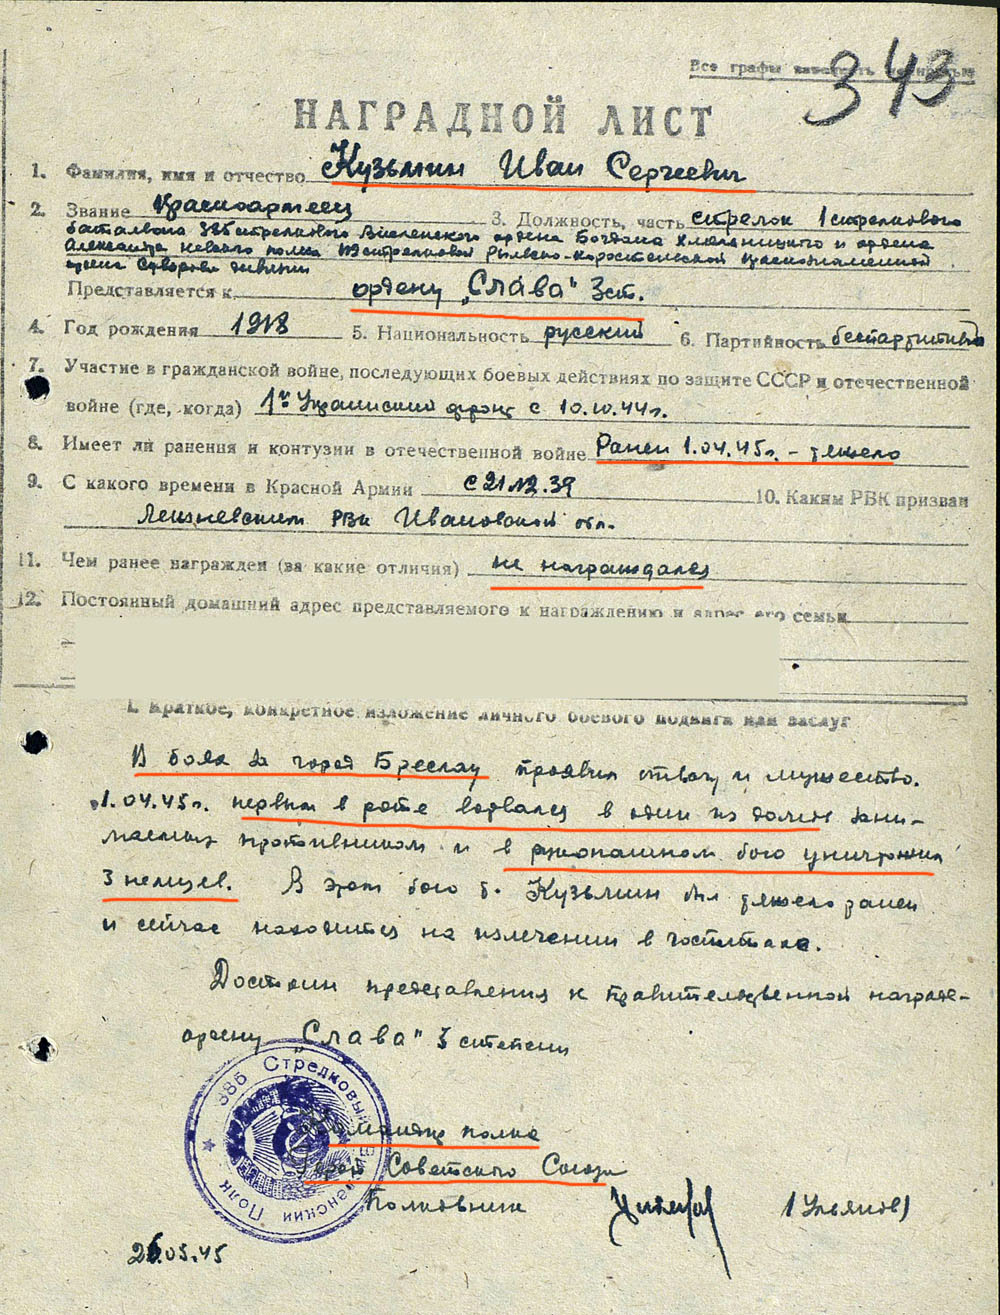 Все графы
343
НАГРАДНОЙ ЛИСТ
1. Фамилия, имя и отчество Кузьмин Иван Сергеевич
2. Звание Красноармеец 3. Должность, часть стрелок 1 стрелкового
батальона 385 стрелкового Висленского ордена Богдана Хмельницкого и ордена
Александра Невского полка стрелковой Рыльско-Коростенской Краснознаменной
ордена Суворова дивизии
Представляется к ордену „Слава" 3 ст.
4. Год рождения 1918 5. Национальность русский 6. Партийность беспартийный
7. Участие в гражданской войне, последующих боевых действиях по защите СССР и отечественной
войне (где, когда) 1й Украинский фронт с 10.10.44 г.
8. Имеет ли ранения и контузии в отечественной войне Ранен 1.04.45 г. – тяжело
9. С какого времени в Красной Армии с 21.12.39 10. Каким РВК призван
РВК Ивановской обл.
11. Чем ранее награжден (за какие отличия) не награждался
12. Постоянный домашний адрес представляемого к награждению и адрес его семьи
I. Краткое, конкретное изложение личного боевого подвига или заслуг
В боях за город Бреслау проявил отвагу и мужество.
1.04.45 г. первым в роте ворвался в один из домов зани-
маемых противником и в рукопашном бою уничтожил
3 немцев. В этом бою т. Кузьмин был тяжело ранен
и сейчас находится на излечении в госпитале.
Достоин представления к правительственной награде-
ордену „Слава" 3 степени
385 Стрелковый Висленский Полк
Командир полка
Герой Советского Союза
Полковник (Ульянов)
26.05.45